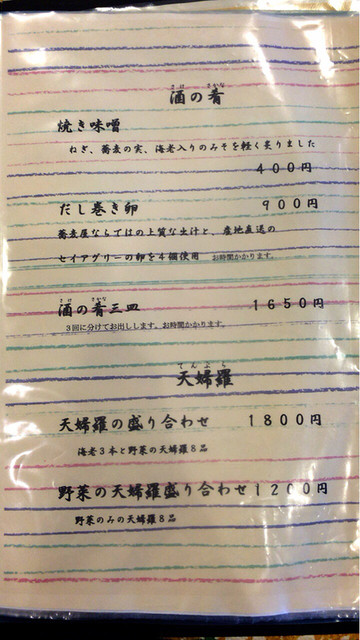 さけ さかな
酒の肴
焼き味噌
ねぎ、蕎麦の実、海老入りのみそを軽く炙りました
400円
だし巻き卵 900円
蕎麦屋ならではの上質な出汁と、産地直送の
セイアグリーの卵を4個使用 お時間かかります。
さけ さかな
酒の肴三皿 1650円
3回に分けてお出しします。お時間かかります。
てんぷら
天婦羅
天婦羅の盛り合わせ 1800円
海老3本と野菜の天婦羅8品
野菜の天婦羅盛り合わせ1200円
野菜のみの天婦羅8品